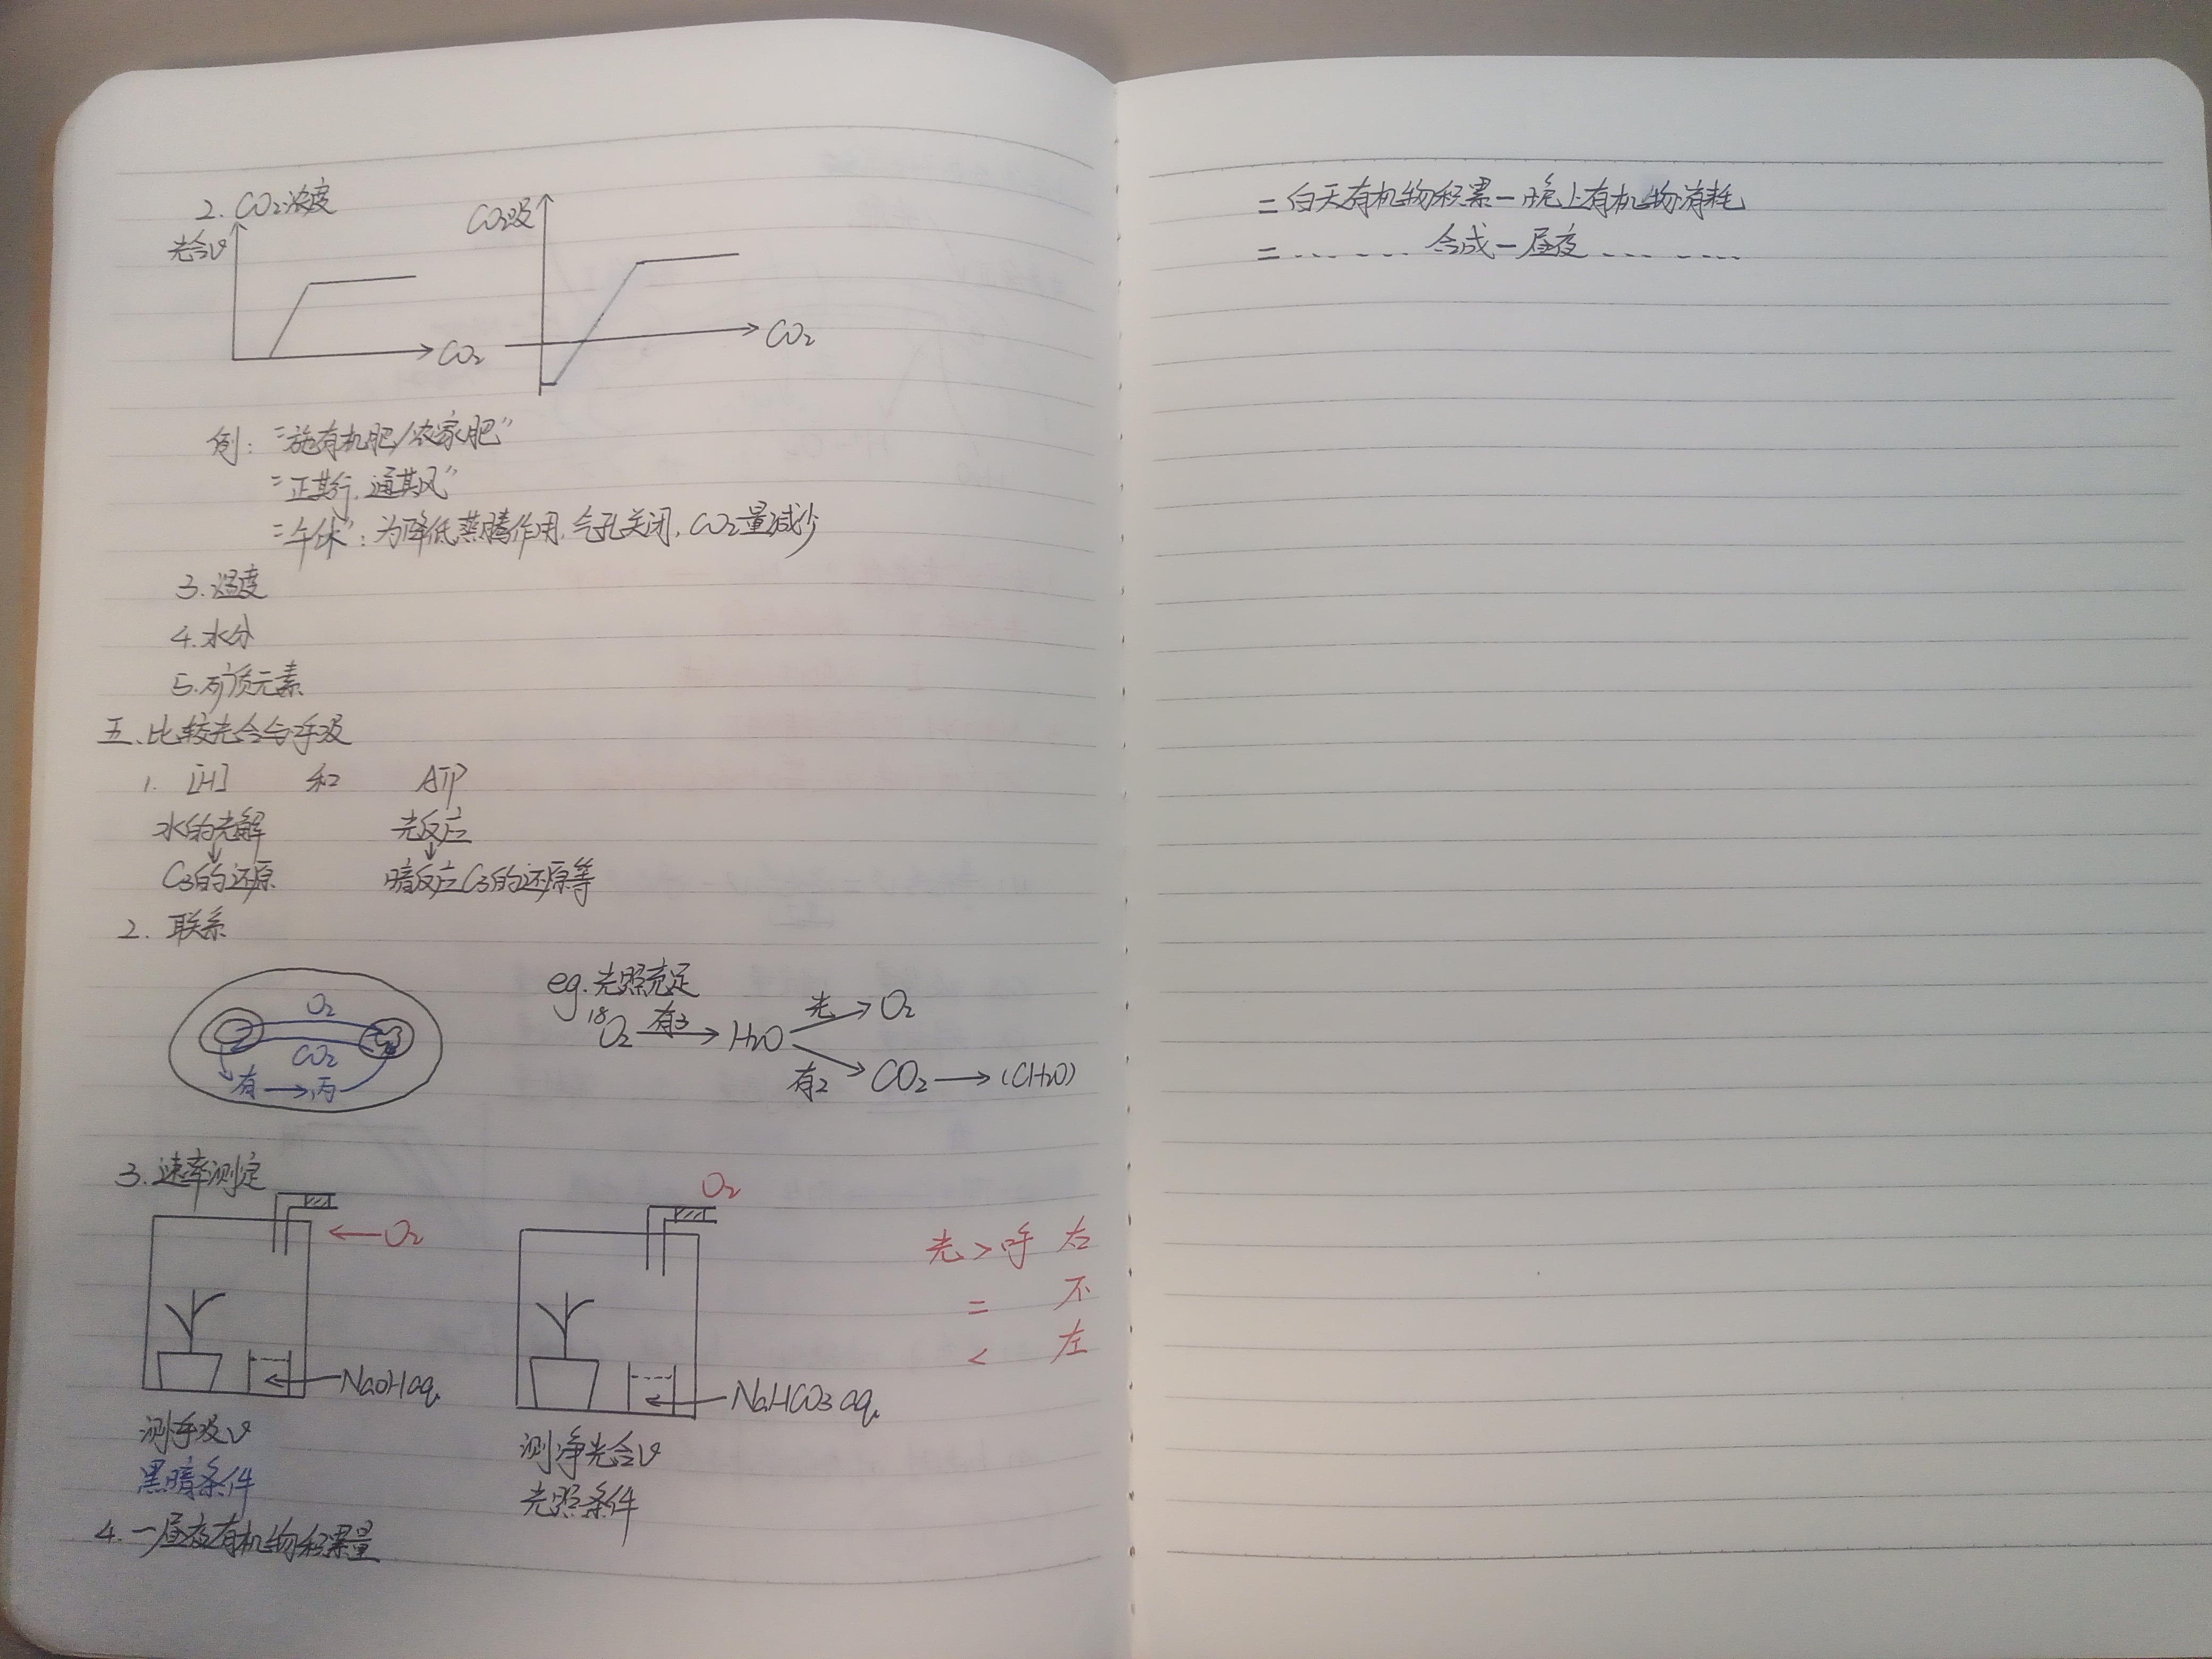 2. CO2浓度
光合v
CO2
CO2吸
CO2
例："施有机肥/农家肥"
"正其行,通其风"
"午休"：为降低蒸腾作用,气孔关闭,CO2量减少
3.温度
4.水分
5.矿质元素
五.比较光合与呼吸
1. [H] 和 ATP
水的光解 光反应
↓ ↓
C3的还原 暗反应C3的还原等
2. 联系
O2
CO2
有→丙
eg.光照充足
18O2 有3→ H2O 光→ O2
有2→ CO2 → (CH2O)
3.速率测定
←O2
NaOHaq.
测呼吸v
黑暗条件
O2
NaHCO3 aq.
测净光合v
光照条件
光>呼 右
= 不
< 左
4.一昼夜有机物积累量
=白天有机物积累-晚上有机物消耗
=--- --- 合成-昼夜--- ----